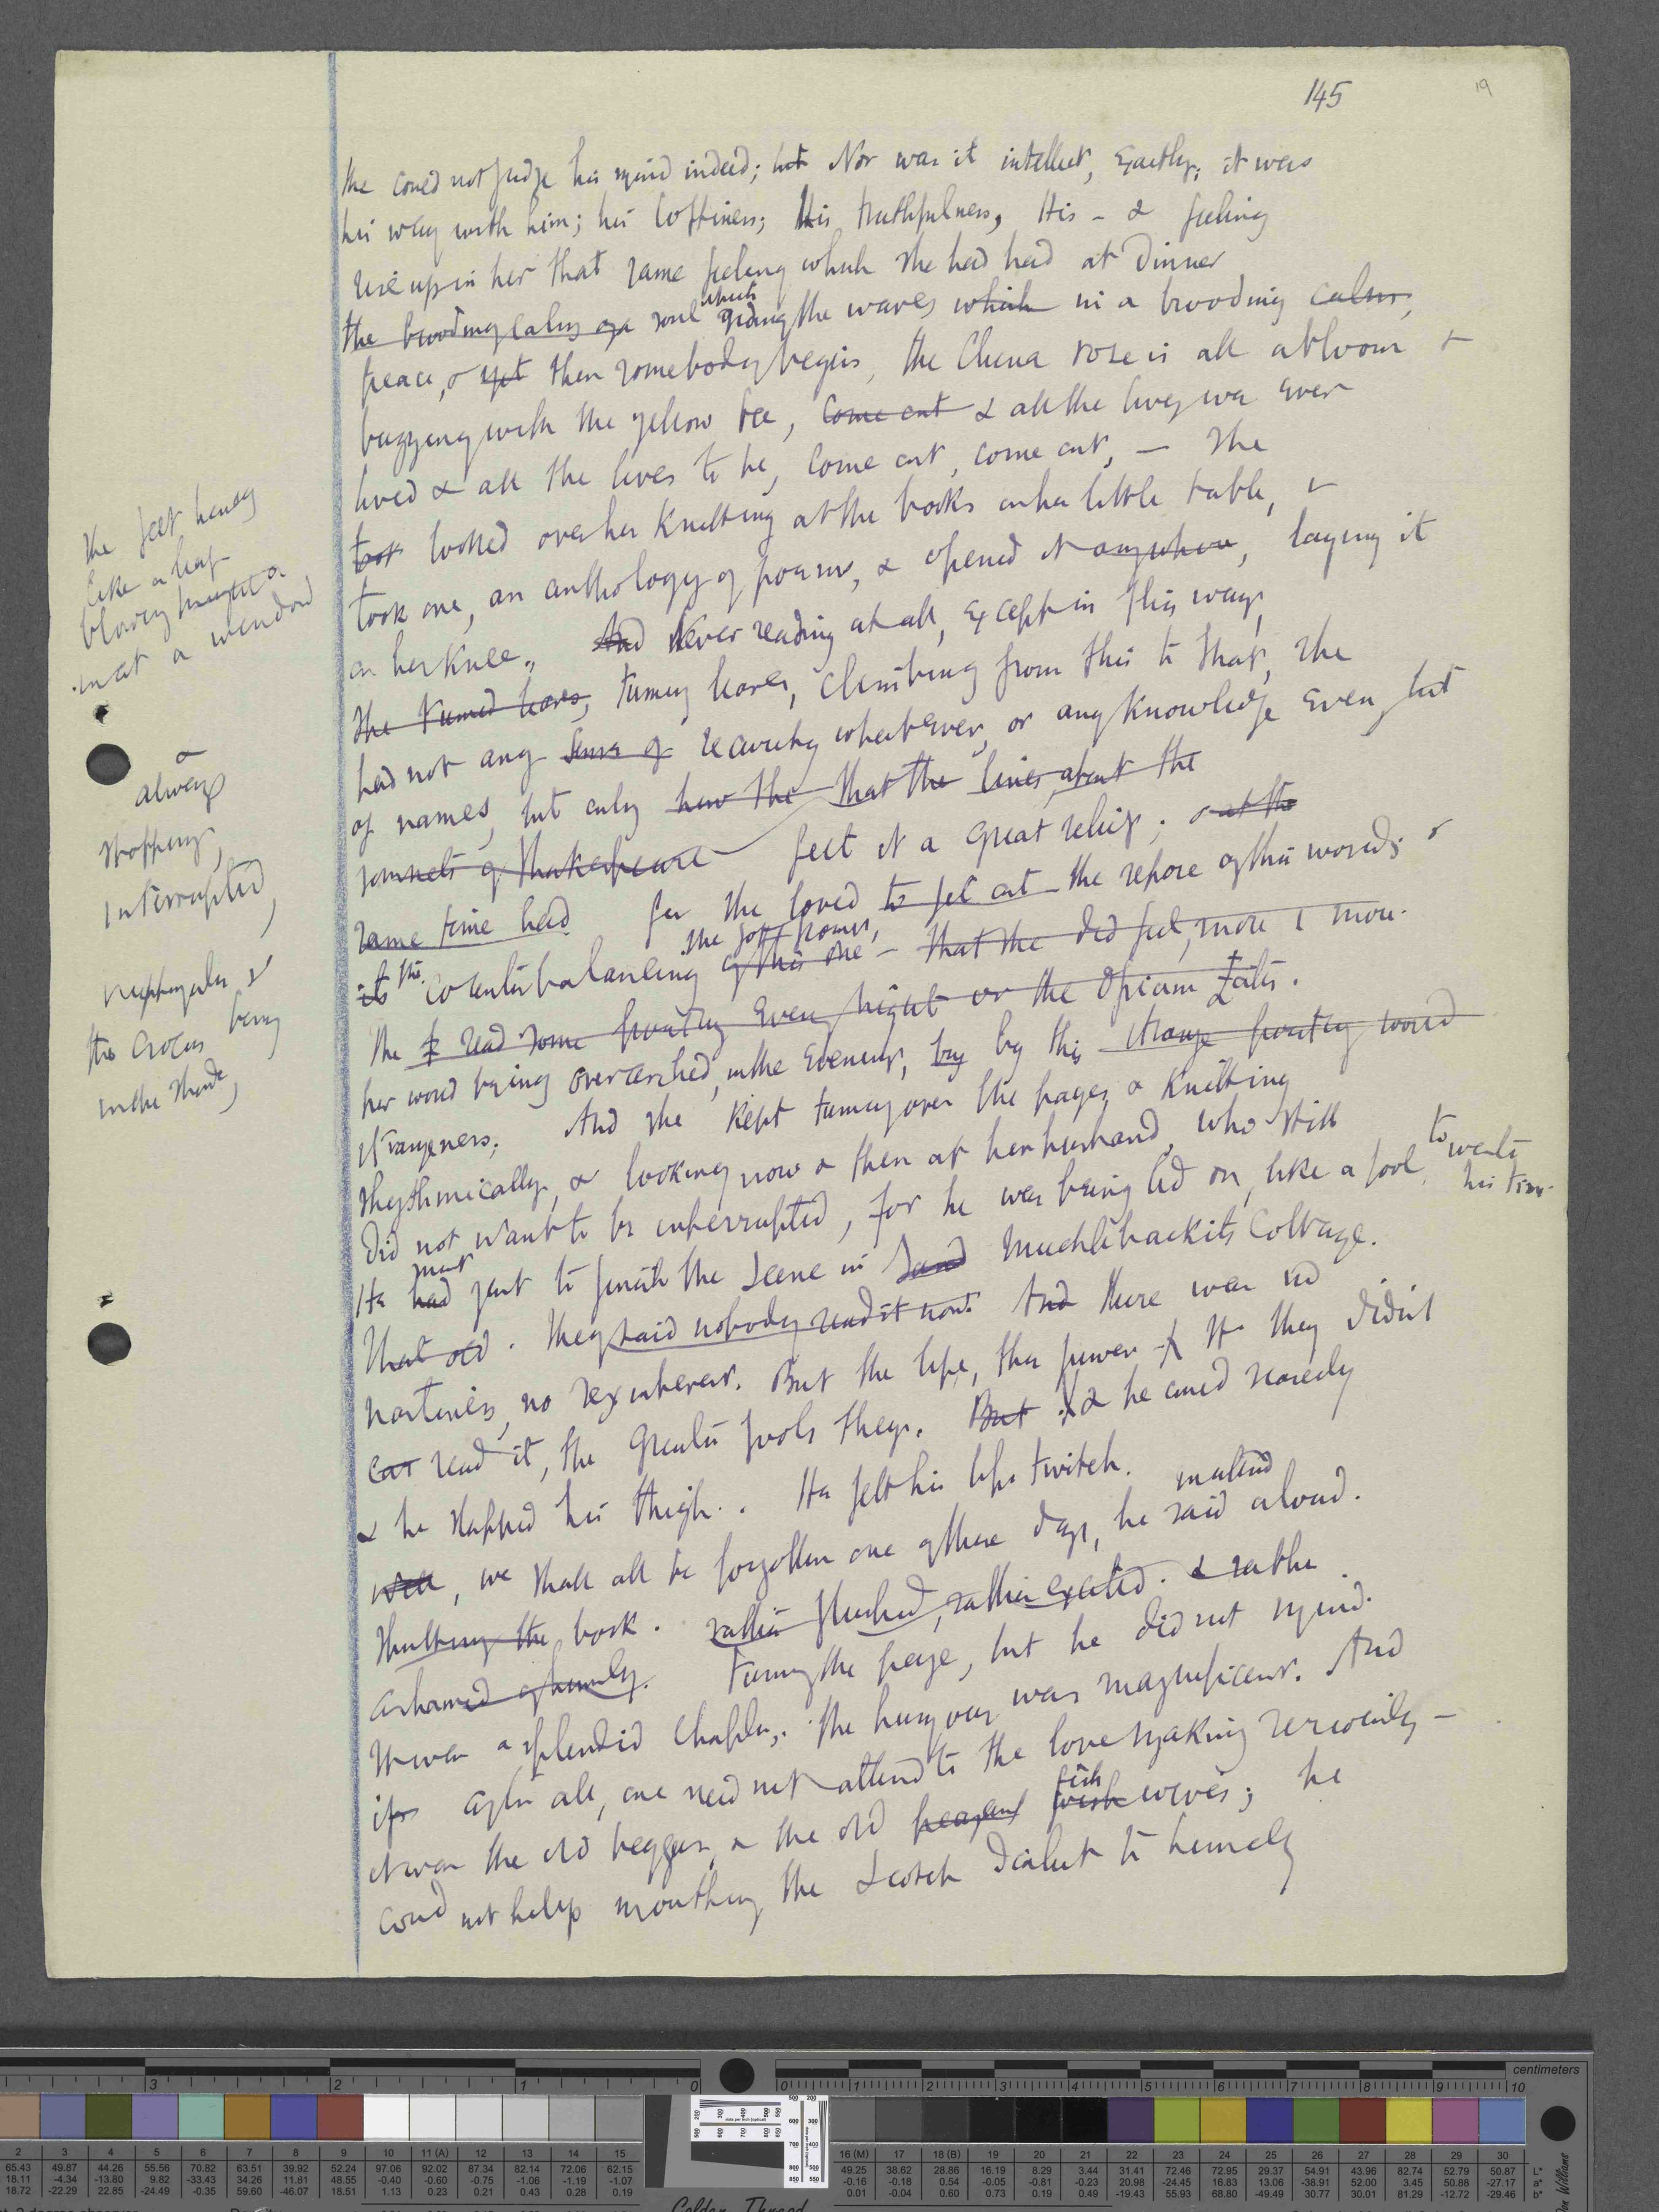 145
19
She could not judge his mind indeed; but Nor was it intellect, exactly; it was
his way with him; his loftiness; His truthfulness, His - & feeling
rise up in her that same feeling which she had had at dinner
the brooding calm of a soul which riding the waves which in a brooding calm,
peace, & yet then somebody begins, the China rose is all abloom &
buzzing with the yellow bee, come out & all the lives we ever
lived & all the lives to be, come out, come out, — She
took looked over her knitting at the books on her little table, &
took one, an anthology of poems, & opened it anywhere, laying it
on her knee. And Never reading at all, except in this way,
She turned leaves, turning leaves, climbing from this to that, she
had not any sense of security whatever, or any knowledge even, but
of names, but only how the that the lines, about the
sonnets of Shakespeare felt it a great relief; & at the
same time had for she loved to feel out the repose of this world; &
its the counterbalancing of this one the soft power, - that she did feel, more & more.
She I read some poetry every night or the Opium Eater.
her world being overarched, in the evening, by by this strange poetry world
strangeness; And she kept turning over the pages & knitting
rhythmically, & looking now & then at her husband, who still
did not want to be interrupted, for he was being led on, like a fool, to waste his time.
He had must just to finish the scene in Sand Mucklebackits Cottage.
That old. They said nobody read it now. And there was no
nastiness, no sex interest. But the life, the power If they didn't
can read it, the greater fools they. But & he could scarcely
& he slapped his thigh. He felt his lips twitch.
Well, we shall all be forgotten one of these days, he said muttered aloud.
Shutting the book. rather flushed, rather excited. & rather
ashamed of himself. Turning the page, but he did not mind.
It was a splendid chapter. The humour was magnificent. And
if after all, one need not attend to the love making seriously -
it was the old beggar, & the old peasant fish wives; he
could not help mouthing the Scotch dialect to himself
She felt heavy
like a leaf
blowing
in at a window
&
always
stopping,
interrupted,
nightingales &
the crocus being
in the shade,
centimeters